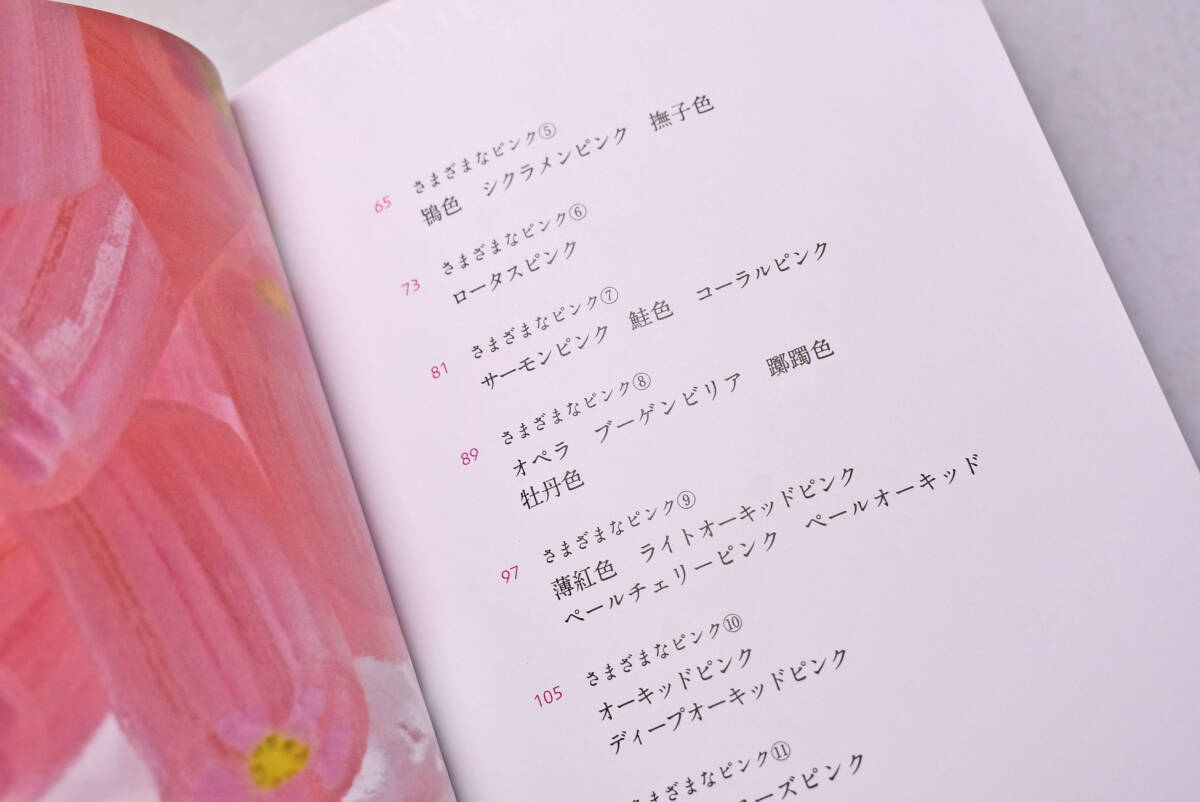 さまざまなピンク⑤
65 鴇色 シクラメンピンク 撫子色
さまざまなピンク⑥
73 ロータスピンク
さまざまなピンク⑦
81 サーモンピンク 鮭色 コーラルピンク
さまざまなピンク⑧
89 オペラ ブーゲンビリア 躑躅色
牡丹色
さまざまなピンク⑨
97 薄紅色 ライトオーキッドピンク
ペールチェリーピンク ペールオーキッド
さまざまなピンク⑩
105 オーキッドピンク
ディープオーキッドピンク
さまざまなピンク⑪
ーズピンク